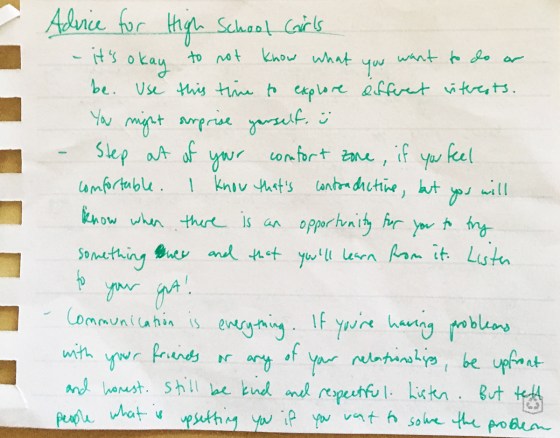 Advice for High School Girls
- it's okay to not know what you want to do or
be. Use this time to explore different interests.
You might surprise yourself. :)
- Step out of your comfort zone, if you feel
comfortable. I know that's contradictive, but you will
know when there is an opportunity for you to try
something and that you'll learn from it. Listen
to your gut!
- Communication is everything. If you're having problems
with your friends or any of your relationships, be upfront
and honest. Still be kind and respectful. Listen. But tell
people what is upsetting you if you want to solve the problem